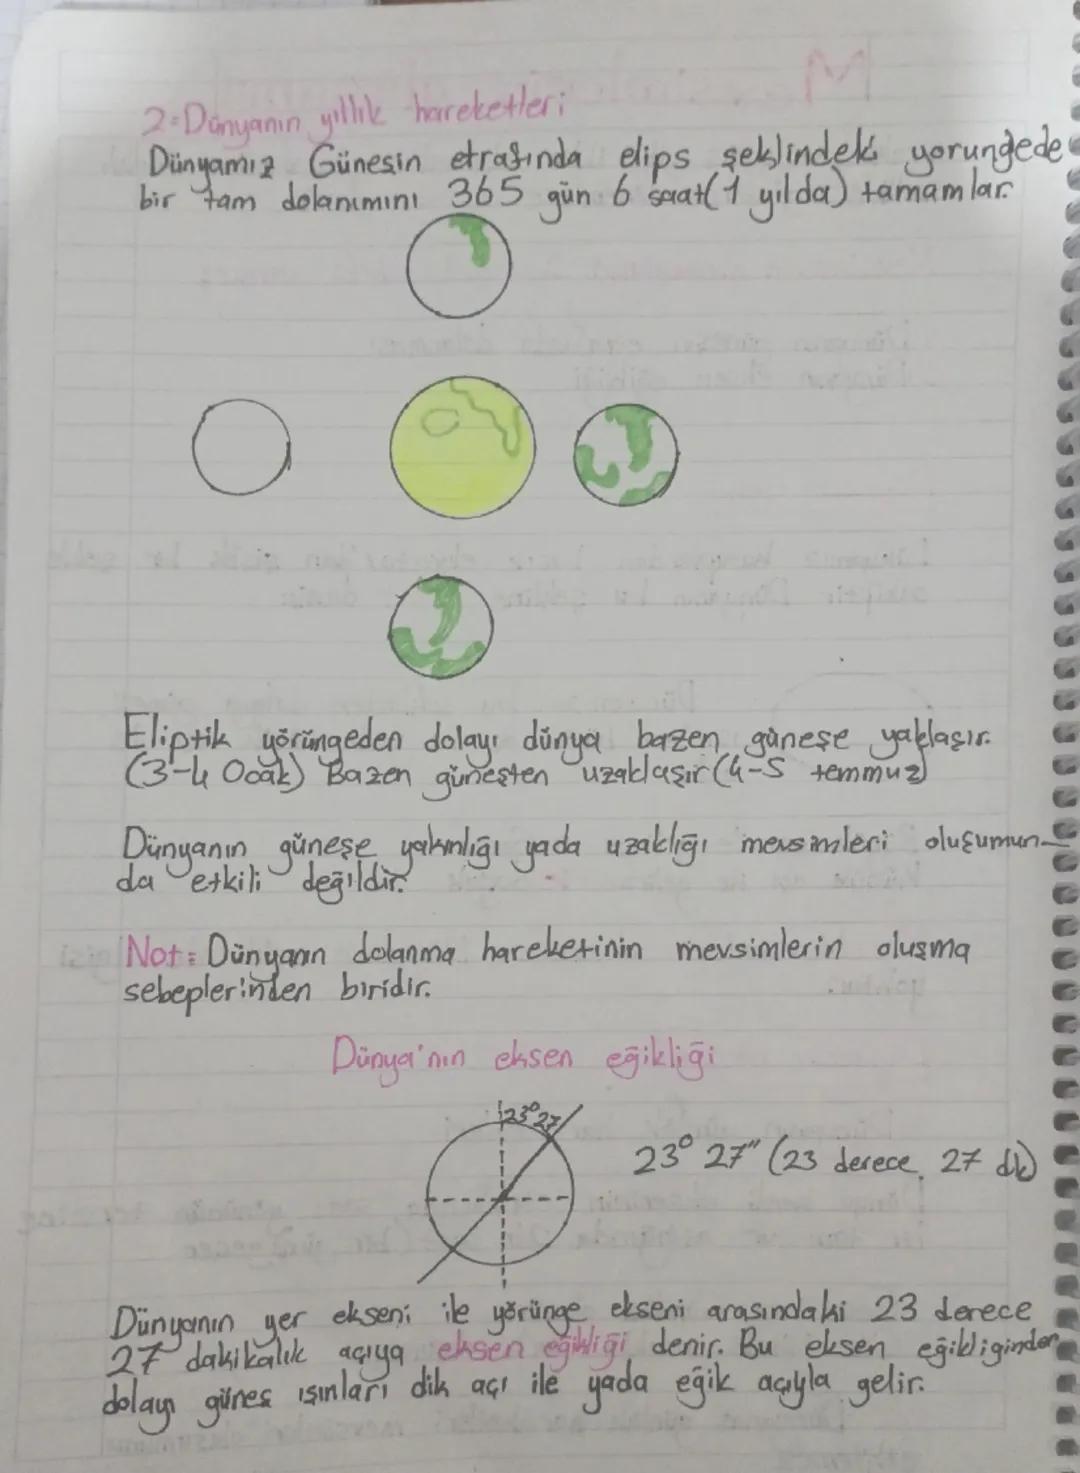 2-Dünyanın yıllık hareketleri
Dünyamız Güneşin etrafında elips şeklindeki yorungede
bir tam dolanımını 365 gün 6 saat (1 yılda) tamamlar.
Eliptik yörüngeden dolayı dünya bazen güneşe yaklaşır.
(3-4 Ocak) Bazen güneşten uzaklaşır (4-5 temmuz)
Dünyanın güneşe yakınlığı yada uzaklığı mevsimleri oluşumun-
da etkili değildir.
Not: Dünyanın dolanma hareketinin mevsimlerin oluşma
sebeplerinden biridir.
Dünya'nın eksen eğikliği
23° 27
23° 27" (23 derece 27 dk)
Dünyanın yer ekseni ile yörünge ekseni arasındaki 23 derece
27 dakikalık açıya eksen eğikliği denir. Bu eksen eğikliginden
dolayı güneş ışınları dik açı ile yada eğik açıyla gelir.